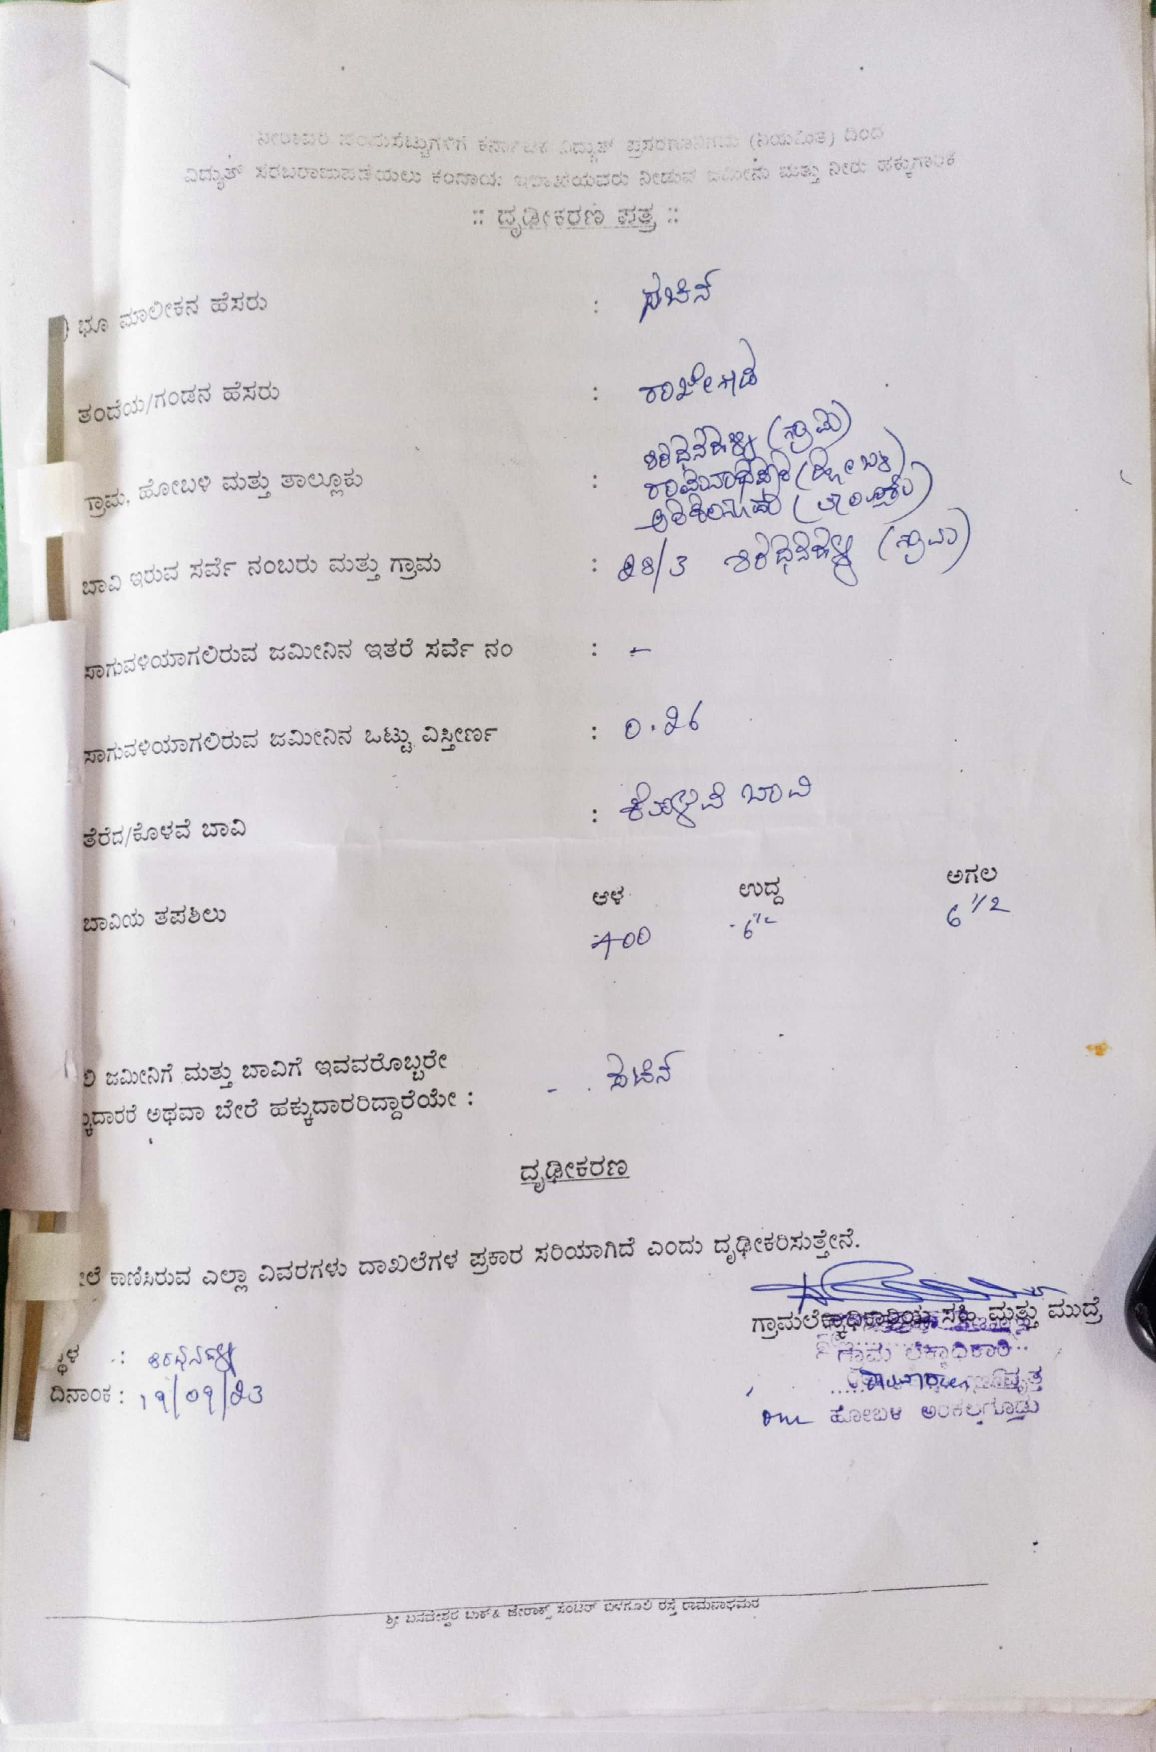 ನೀರಾವರಿ ಪಂಪುಸೆಟ್ಟುಗಳಿಗೆ ಕರ್ನಾಟಕ ವಿದ್ಯುತ್ ಪ್ರಸರಣಾನಿಗಮ (ನಿಯಮಿತ) ದಿಂದ
ವಿದ್ಯುತ್ ಸರಬರಾಜುಪಡೆಯಲು ಕಂದಾಯ ಇಲಾಖೆಯವರು ನೀಡುವ ಜಮೀನು ಮತ್ತು ನೀರು ಹಕ್ಕುಗಾರಿಕೆ
:: ದೃಢೀಕರಣ ಪತ್ರ ::
) ಭೂ ಮಾಲೀಕನ ಹೆಸರು : ಸಚಿನ್
ತಂದೆಯ/ಗಂಡನ ಹೆಸರು : ರಾಜೇಗೌಡ
ಗ್ರಾಮ, ಹೋಬಳಿ ಮತ್ತು ತಾಲ್ಲೂಕು : (ಗ್ರಾಮ)
ರಾಮನಾಥಪುರ (ಹೋಬಳಿ)
(ತಾಲ್ಲೂಕು)
ಬಾವಿ ಇರುವ ಸರ್ವೆ ನಂಬರು ಮತ್ತು ಗ್ರಾಮ : (ಗ್ರಾಮ)
ಸಾಗುವಳಿಯಾಗಲಿರುವ ಜಮೀನಿನ ಇತರೆ ಸರ್ವೆ ನಂ : -
ಸಾಗುವಳಿಯಾಗಲಿರುವ ಜಮೀನಿನ ಒಟ್ಟು ವಿಸ್ತೀರ್ಣ : 0.26
ತೆರೆದ/ಕೊಳವೆ ಬಾವಿ : ಕೊಳವೆ ಬಾವಿ
ಆಳ ಉದ್ದ ಅಗಲ
ಬಾವಿಯ ತಪಶಿಲು 400 6 1/2 6 1/2
ರಿ ಜಮೀನಿಗೆ ಮತ್ತು ಬಾವಿಗೆ ಇವವರೊಬ್ಬರೇ - ಸಚಿನ್
ಕ್ಕುದಾರರೆ ಅಥವಾ ಬೇರೆ ಹಕ್ಕುದಾರರಿದ್ದಾರೆಯೇ :
ದೃಢೀಕರಣ
ೇಲೆ ಕಾಣಿಸಿರುವ ಎಲ್ಲಾ ವಿವರಗಳು ದಾಖಲೆಗಳ ಪ್ರಕಾರ ಸರಿಯಾಗಿದೆ ಎಂದು ದೃಢೀಕರಿಸುತ್ತೇನೆ.
ಗ್ರಾಮಲೆಕ್ಕಾಧಿಕಾರಿಯ ಸಹಿ ಮತ್ತು ಮುದ್ರೆ
ಗ್ರಾಮ ಲೆಕ್ಕಾಧಿಕಾರಿ
ಸ್ಥಳ :
ವೃತ್ತ
ದಿನಾಂಕ : 19/09/23
ಹೋಬಳಿ ಅರಕಲಗೂಡು
ಶ್ರೀ ಬಸವೇಶ್ವರ ಬುಕ್ & ಜೇರಾಕ್ಸ್ ಸೆಂಟರ್ ಬಿಳಗೂಲಿ ರಸ್ತೆ ರಾಮನಾಥಪುರ